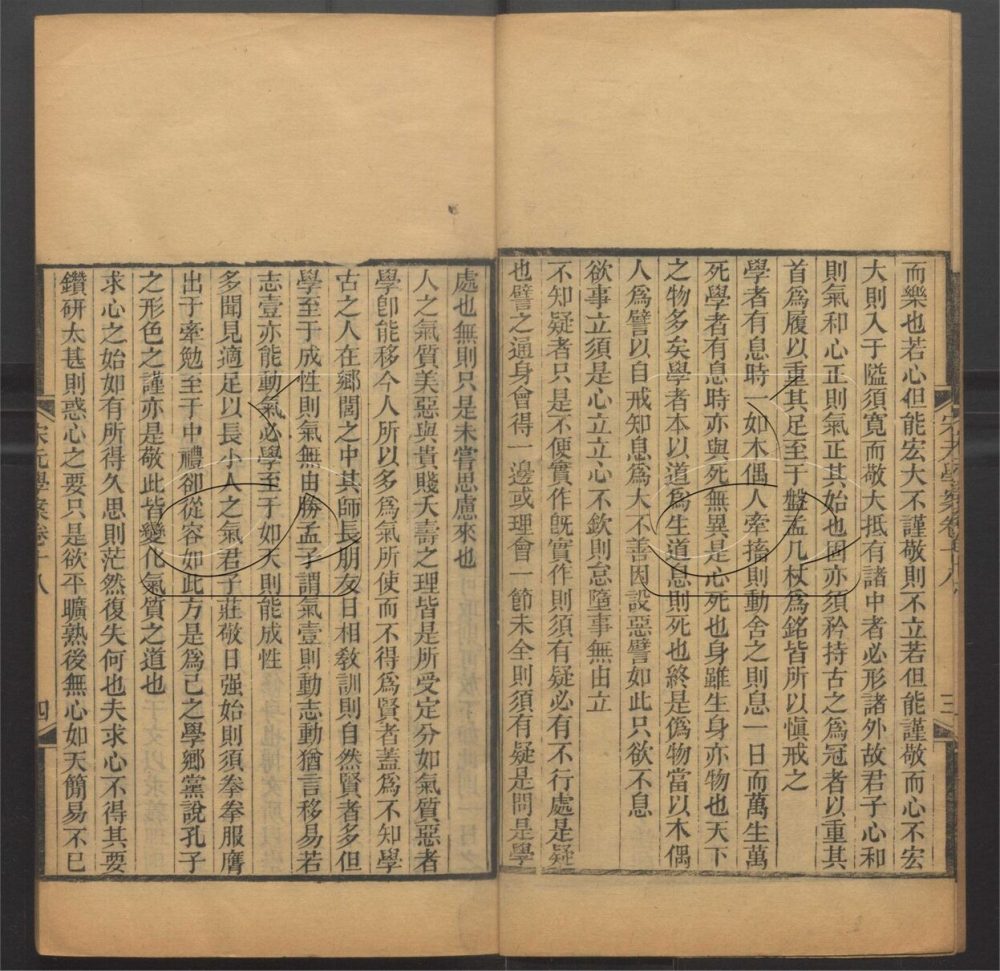 而樂也若心但能宏大不謹敬則不立若但能謹敬而心不宏
大則入于隘須寬而敬大抵有諸中者必形諸外故君子心和
則氣和心正則氣正其始也固亦須矜持古之爲冠者以重其
首爲履以重其足至于盤盂几杖爲銘皆所以慎戒之
學者有息時一如木偶人牽搐則動舍之則息一日而萬生萬
死學者有息時亦與死無異是心死也身雖生身亦物也天下
之物多矣學者本以道爲生道息則死也終是僞物當以木偶
人爲譬以自戒知息爲大不善因設惡譬如此只欲不息
欲事立須是心立立心不欽則怠墮事無由立
不知疑者只是不便實作旣實作則須有疑必有不行處是疑
也譬之通身會得一邊或理會一節未全則須有疑是問是學
宋元學案卷十八
三
處也無則只是未嘗思慮來也
人之氣質美惡與貴賤夭壽之理皆是所受定分如氣質惡者
學卽能移今人所以多爲氣所使而不得爲賢者蓋爲不知學
古之人在鄉閭之中其師長朋友日相敎訓則自然賢者多但
學至于成性則氣無由勝孟子謂氣壹則動志動猶言移易若
志壹亦能動氣必學至于如天則能成性
多聞見適足以長小人之氣君子莊敬日强始則須拳拳服膺
出于牽勉至于中禮卻從容如此方是爲己之學鄉黨說孔子
之形色之謹亦是敬此皆變化氣質之道也
求心之始如有所得久思則茫然復失何也夫求心不得其要
鑽研太甚則惑心之要只是欲平曠熟後無心如天簡易不已
宋元學案卷十八
四